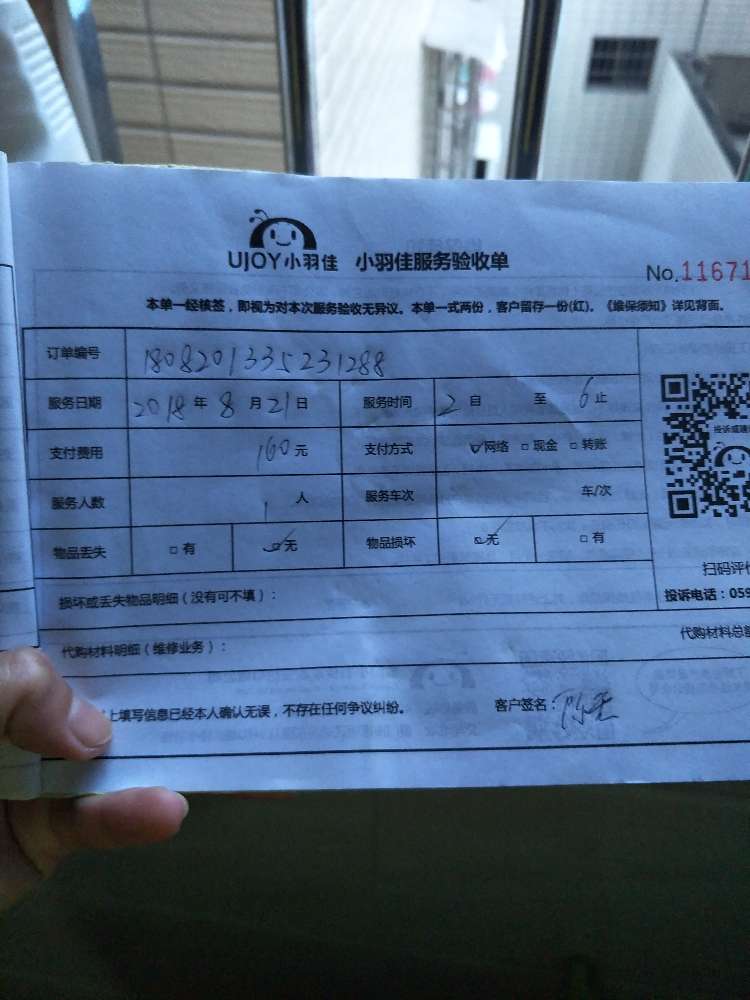 UJOY小羽佳 小羽佳服务验收单
No.11671
本单一经核签，即视为对本次服务验收无异议。本单一式两份，客户留存一份(红)。《维保须知》详见背面。
订单编号 1808201335231288
服务日期 2018年8月21日 服务时间 2自 至 6止
支付费用 160元 支付方式 ☑网络 □现金 □转账
服务人数 1人 服务车次 车/次
物品丢失 □有 ☑无 物品损坏 ☑无 □有
投诉或建
扫码评价
损坏或丢失物品明细（没有可不填）：
投诉电话：059
代购材料明细（维修业务）：
代购材料总额
上填写信息已经本人确认无误，不存在任何争议纠纷。 客户签名：陈